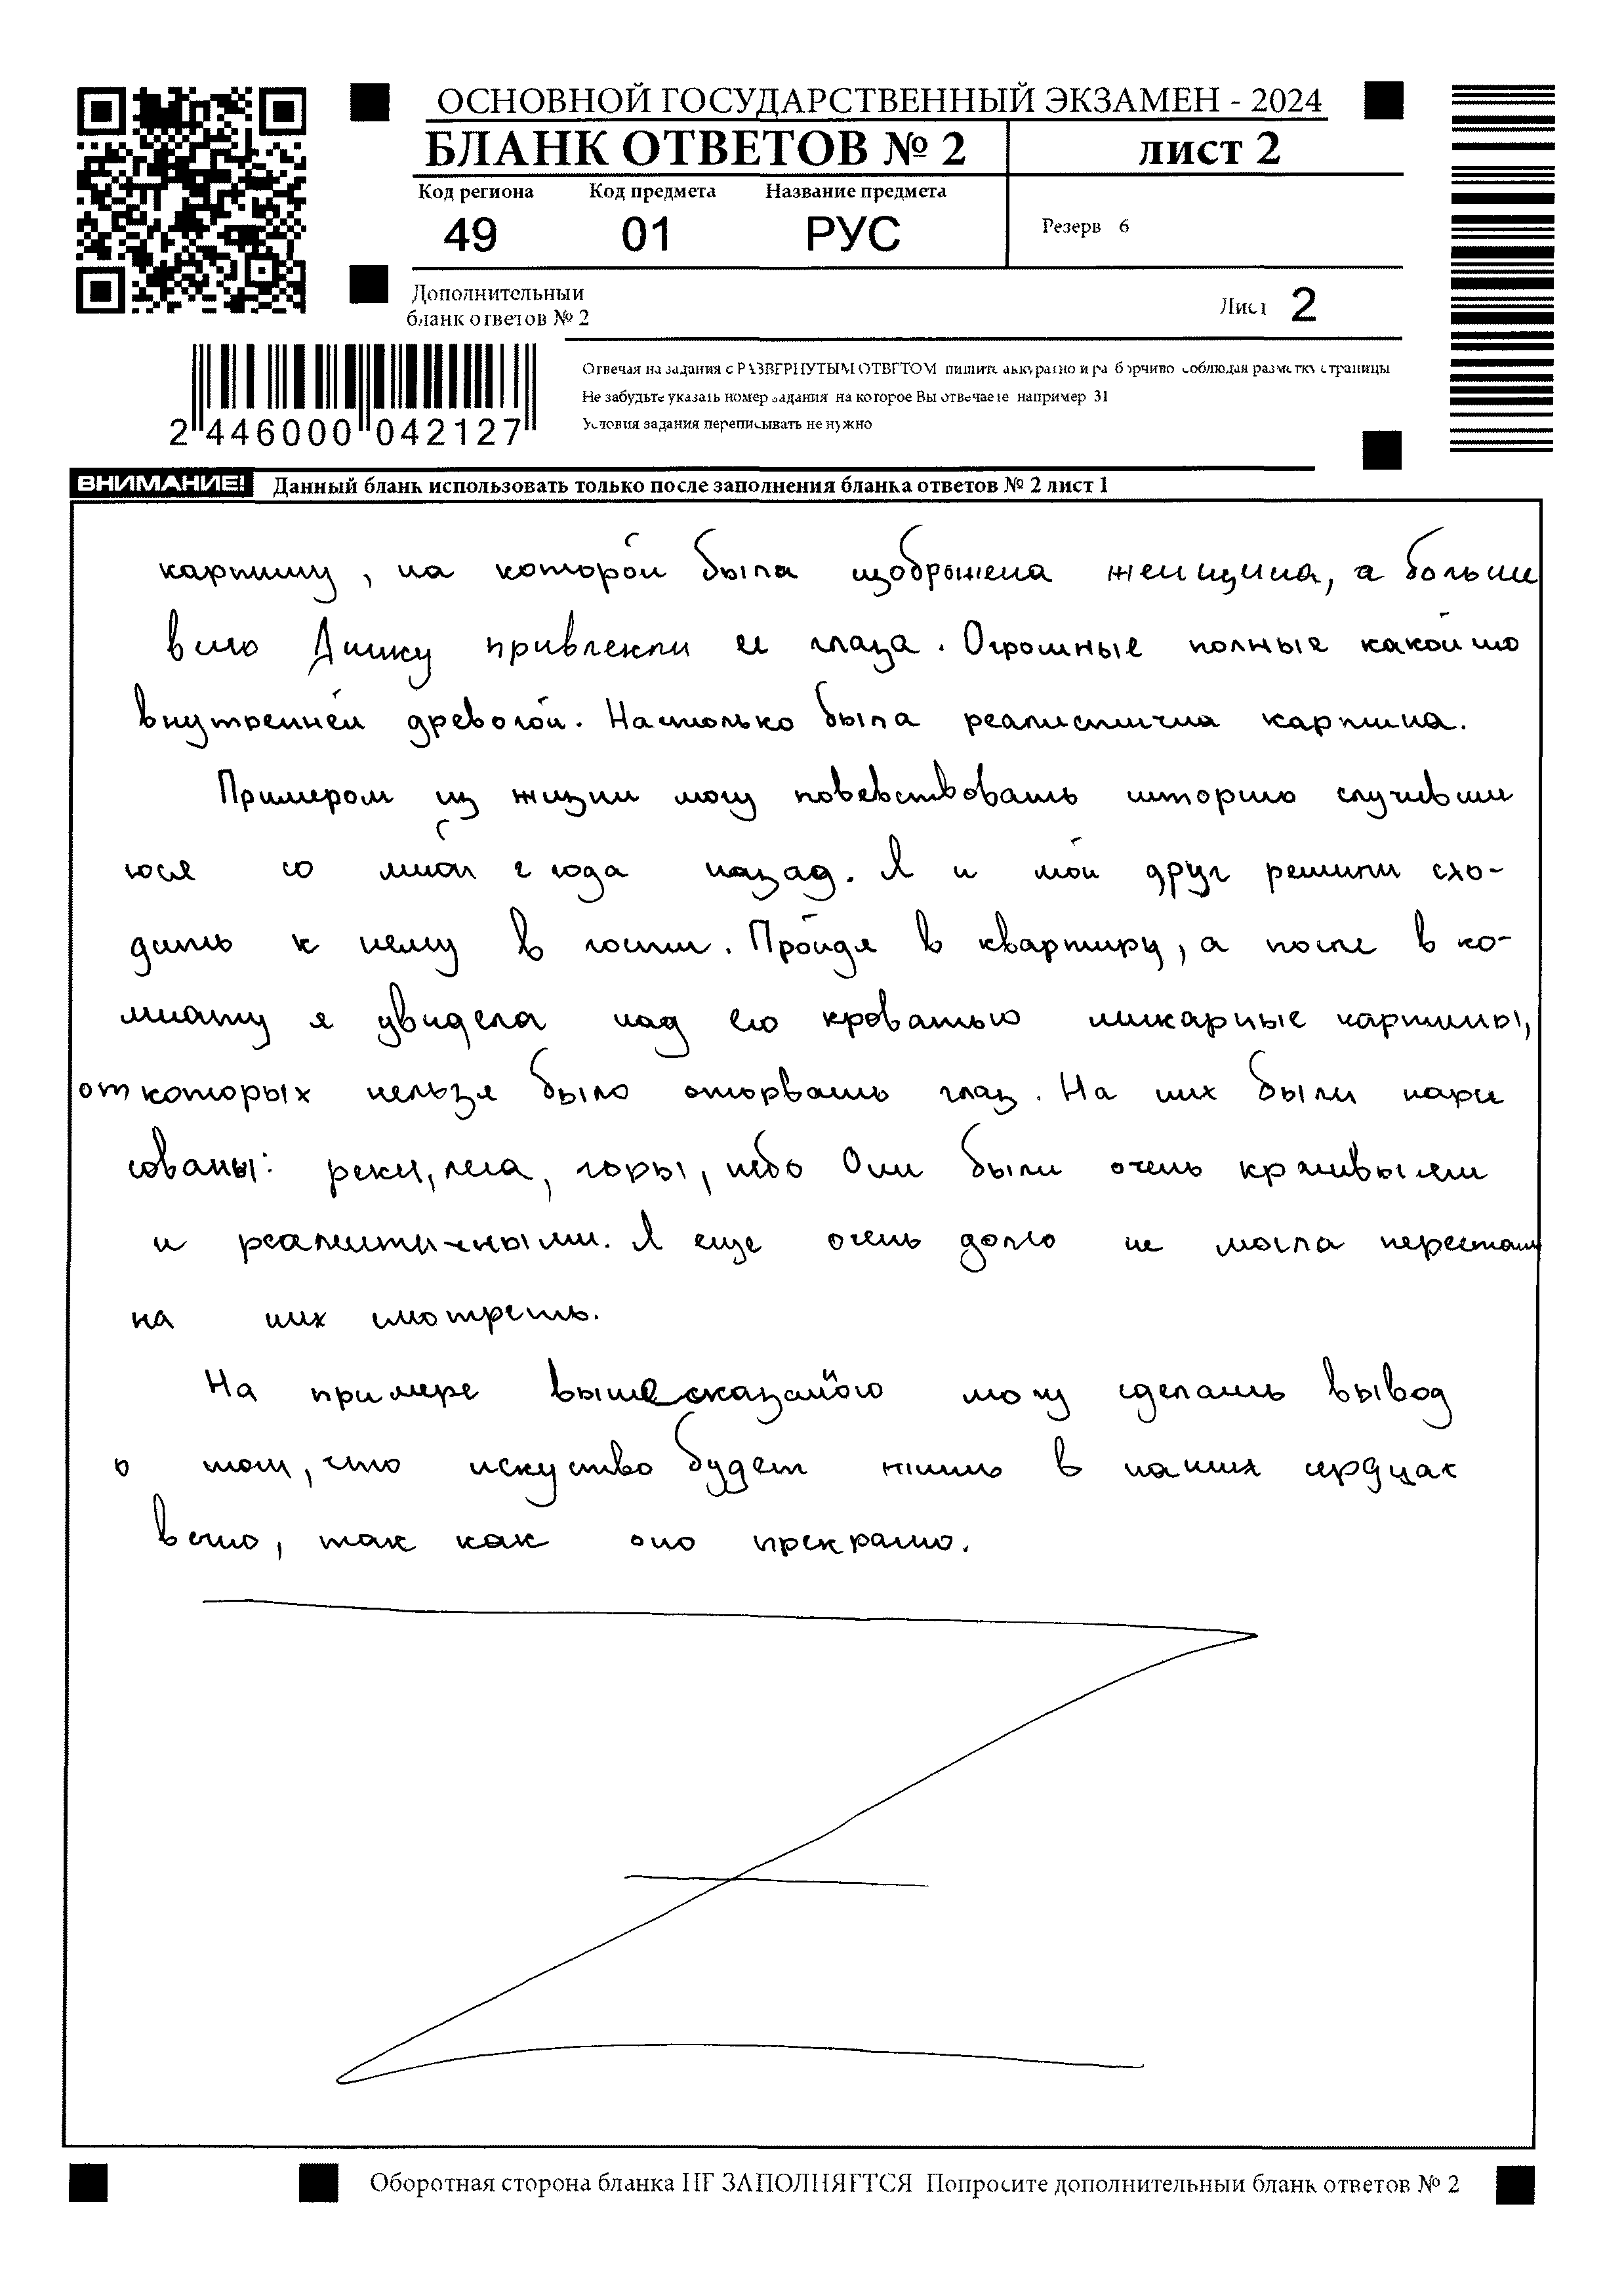 ОСНОВНОЙ ГОСУДАРСТВЕННЫЙ ЭКЗАМЕН - 2024
БЛАНК ОТВЕТОВ № 2
лист 2
Код региона Код предмета Название предмета
49 01 РУС
Резерв 6
Дополнительный
бланк ответов № 2
Лист 2
Отвечая на задания с РАЗВЕРНУТЫМ ОТВЕТОМ пишите аккуратно и разборчиво соблюдая разметку страницы
Не забудьте указать номер задания на которое Вы отвечаете например 31
Условия задания переписывать не нужно
2 446000 042127
ВНИМАНИЕ! Данный бланк использовать только после заполнения бланка ответов № 2 лист 1
картину, на которой была изображена женщина, а больше
всего Димку привлекли ее глаза. Огромные полные какой то
внутренней древогой. Настолько была реалистична картина.
Примером из жизни могу повевствовать историю случивши
юся со мной 2 года назад. Я и мой друг решили схо-
дить к нему в гости. Пройдя в квартиру, а после в ко-
мнату я увидела над его кроватью шикарные картины,
от которых нельзя было оторвать глаз. На них были нари
сованы: реки, леса, горы, небо Они были очень красивыми
и реалистичными. Я еще очень долго не могла перестать
на них смотреть.
На примере вышесказаного могу сделать вывод
о том, что искуство будет жить в наших сердцах
вечно, так как оно прекрасно.
Оборотная сторона бланка НЕ ЗАПОЛНЯЕТСЯ Попросите дополнительный бланк ответов № 2